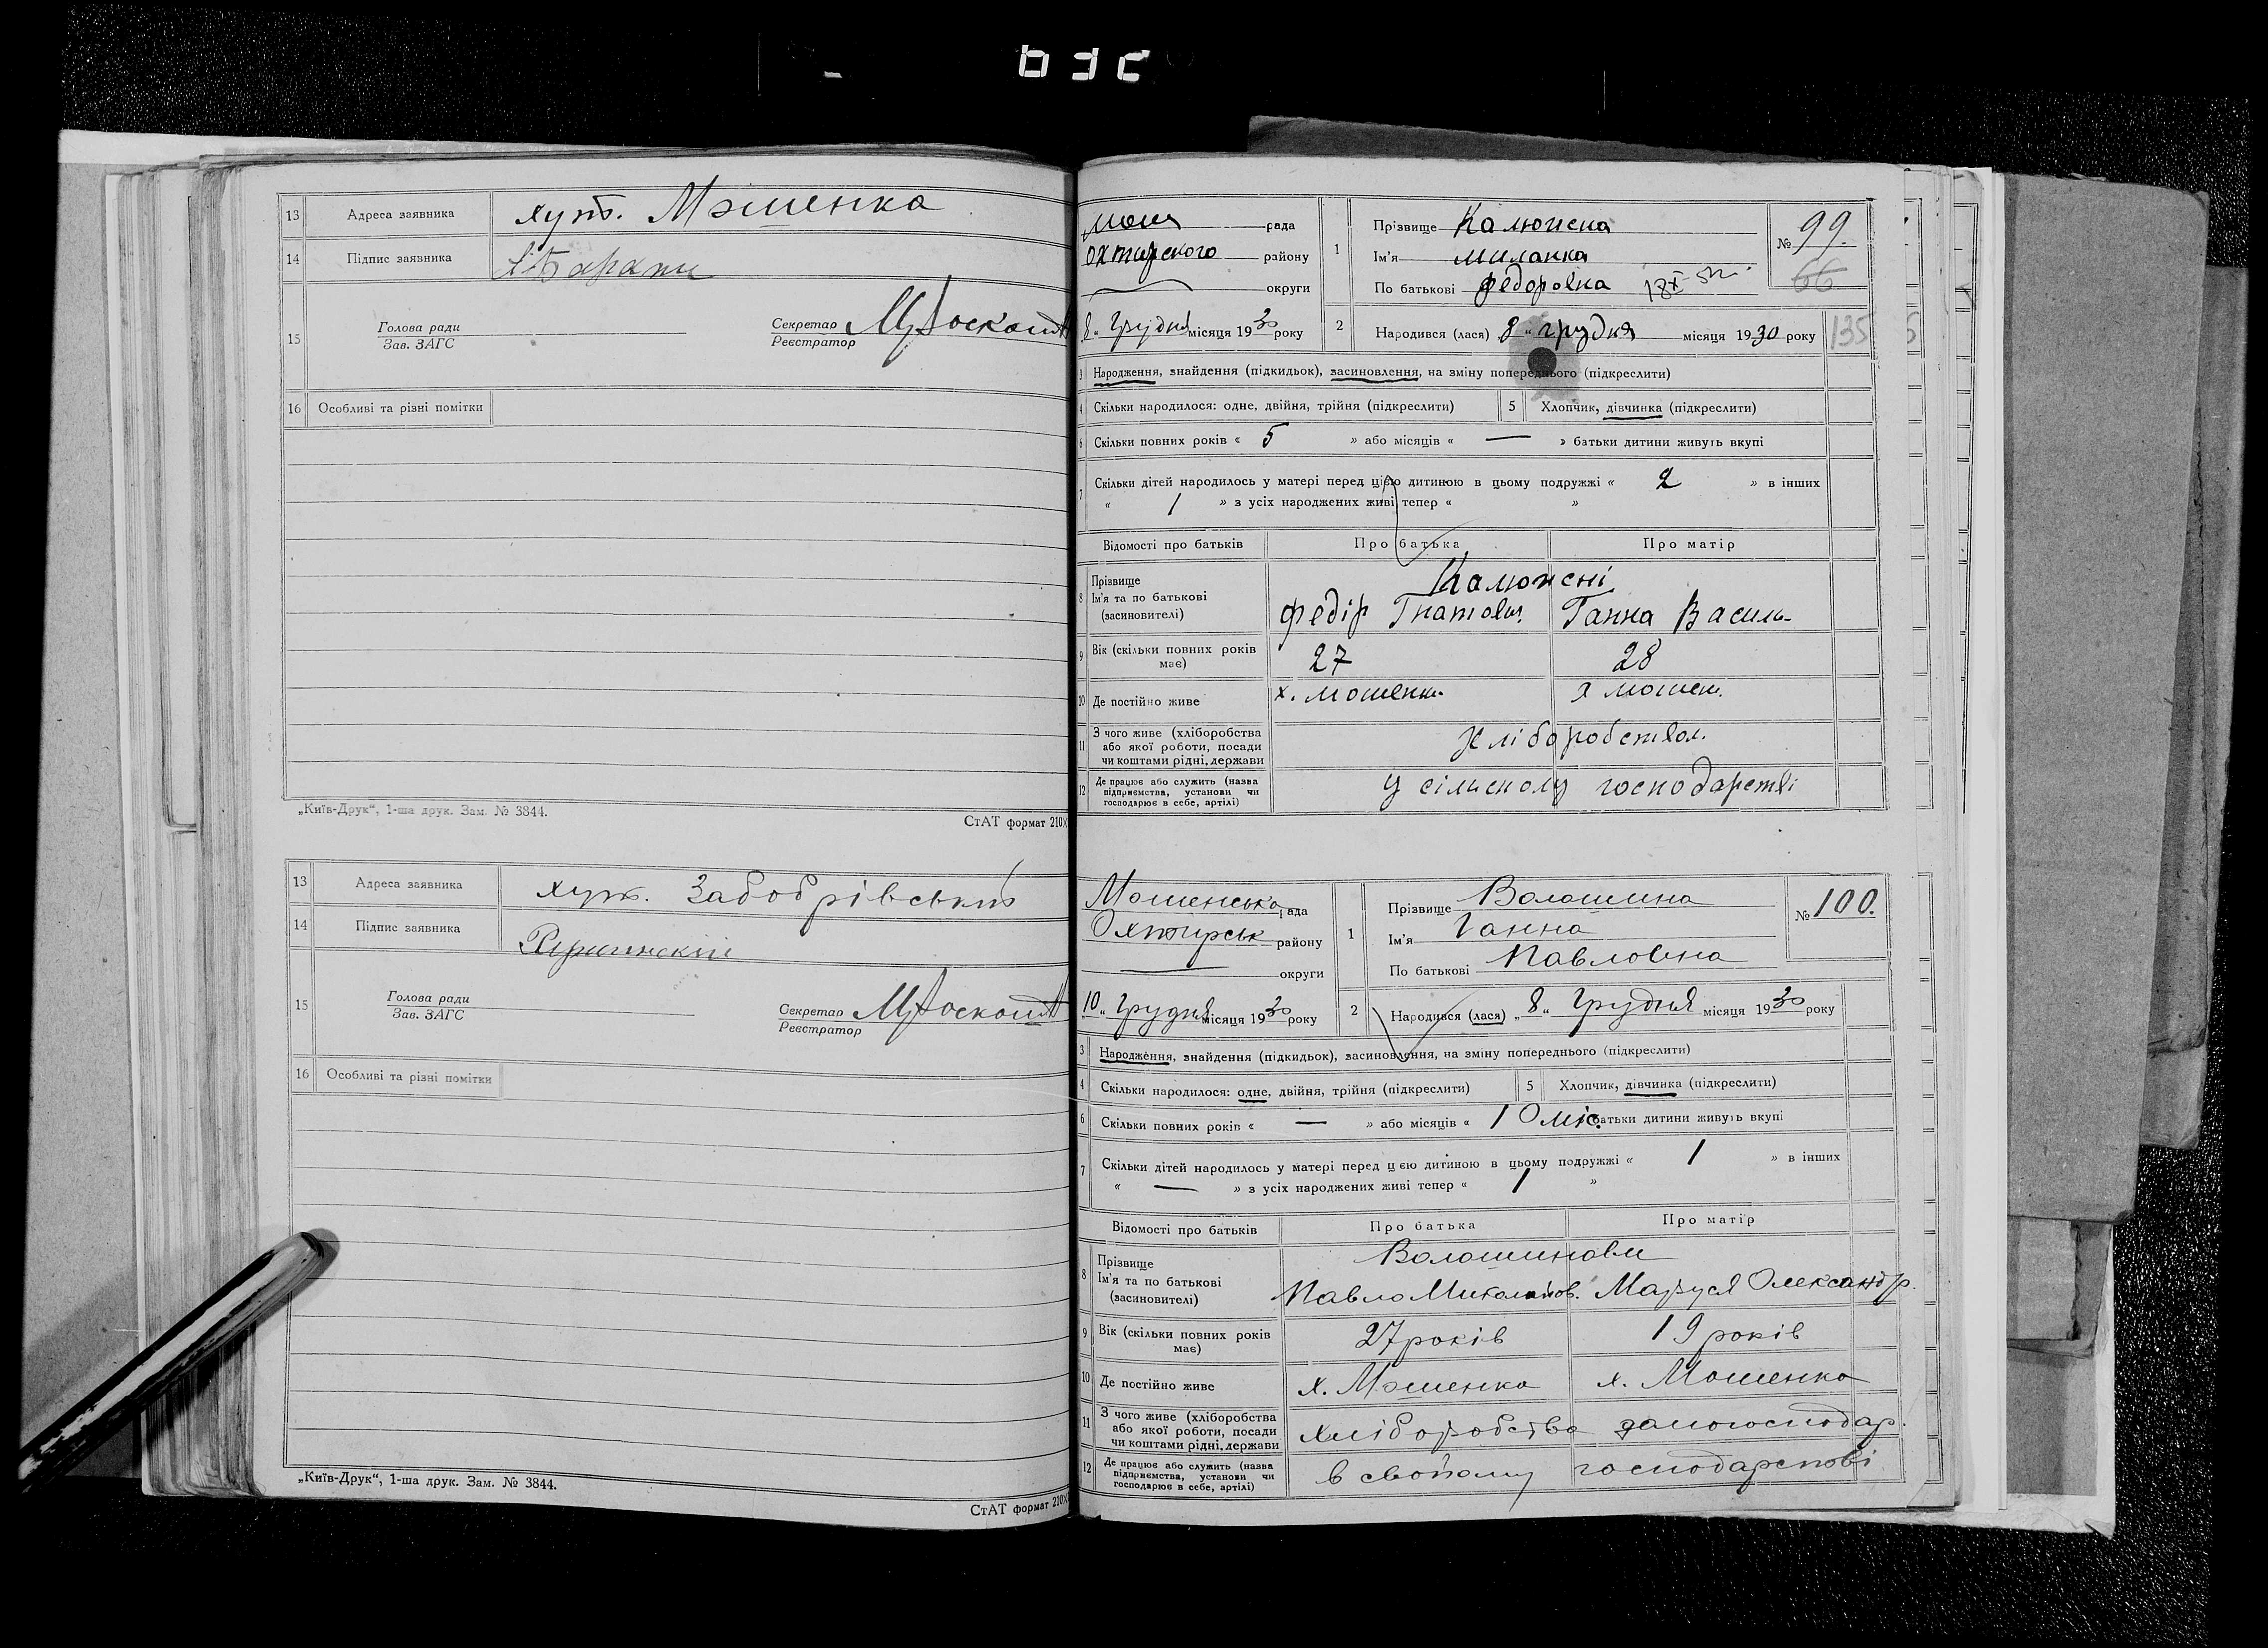 13 Адреса заявника хут. Мошенка
14 Підпис заявника
15 Голова ради
Зав. ЗАГС
Секретар
Реєстратор
16 Особливі та різні помітки
„Київ-Друк“, 1-ша друк. Зам. № 3844.
СтАТ формат 210
13 Адреса заявника хут. Забобрівський
14 Підпис заявника
15 Голова ради
Зав. ЗАГС
Секретар
Реєстратор
16 Особливі та різні помітки
„Київ-Друк“, 1-ша друк. Зам. № 3844.
СтАТ формат 210
Мош рада
Охтирского району
округи
8 „ Грудня місяця 1930 року
1 Прізвище Калюжна
Ім'я миланка
По батькові федоровна
№ 99.
66
2 Народився (лася) 8 „ грудня місяця 1930 року
135
3 Народження, знайдення (підкидьок), засиновлення, на зміну попереднього (підкреслити)
4 Скільки народилося: одне, двійня, трійня (підкреслити) 5 Хлопчик, дівчинка (підкреслити)
6 Скільки повних років « 5 » або місяців « — » батьки дитини живуть вкупі
7 Скільки дітей народилось у матері перед цією дитиною в цьому подружжі « 2 » в інших
« 1 » з усіх народжених живі тепер « »
Відомості про батьків Про батька Про матір
8 Прізвище Калюжні
Ім'я та по батькові
(засиновителі) федір Гнатович Ганна Василь-
9 Вік (скільки повних років має) 27 28
10 Де постійно живе х. мошенки х мошен.
11 З чого живе (хліборобства
або якої роботи, посади
чи коштами рідні, держави Хліборобством
12 Де працює або служить (назва
підприємства, установи чи
господарює в себе, артілі) у сільскому господарстві
Мошенська рада
Охтирськ району
округи
10 „ Грудня місяця 1930 року
1 Прізвище Волошина
Ім'я Ганна
По батькові Павловна
№ 100.
2 Народився (лася) „ 8 „ Грудня місяця 1930 року
3 Народження, знайдення (підкидьок), засиновлення, на зміну попереднього (підкреслити)
4 Скільки народилося: одне, двійня, трійня (підкреслити) 5 Хлопчик, дівчинка (підкреслити)
6 Скільки повних років « — » або місяців « 10 міс. батьки дитини живуть вкупі
7 Скільки дітей народилось у матері перед цією дитиною в цьому подружжі « 1 » в інших
« — » з усіх народжених живі тепер « 1 »
Відомості про батьків Про батька Про матір
8 Прізвище Волошинови
Ім'я та по батькові
(засиновителі) Павло Миколайов. Маруся Олександр.
9 Вік (скільки повних років має) 27 років 19 років
10 Де постійно живе х. Мошенка х. Мошенка
11 З чого живе (хліборобства
або якої роботи, посади
чи коштами рідні, держави хліборобство
12 Де працює або служить (назва
підприємства, установи чи
господарює в себе, артілі) в свойому господарстові